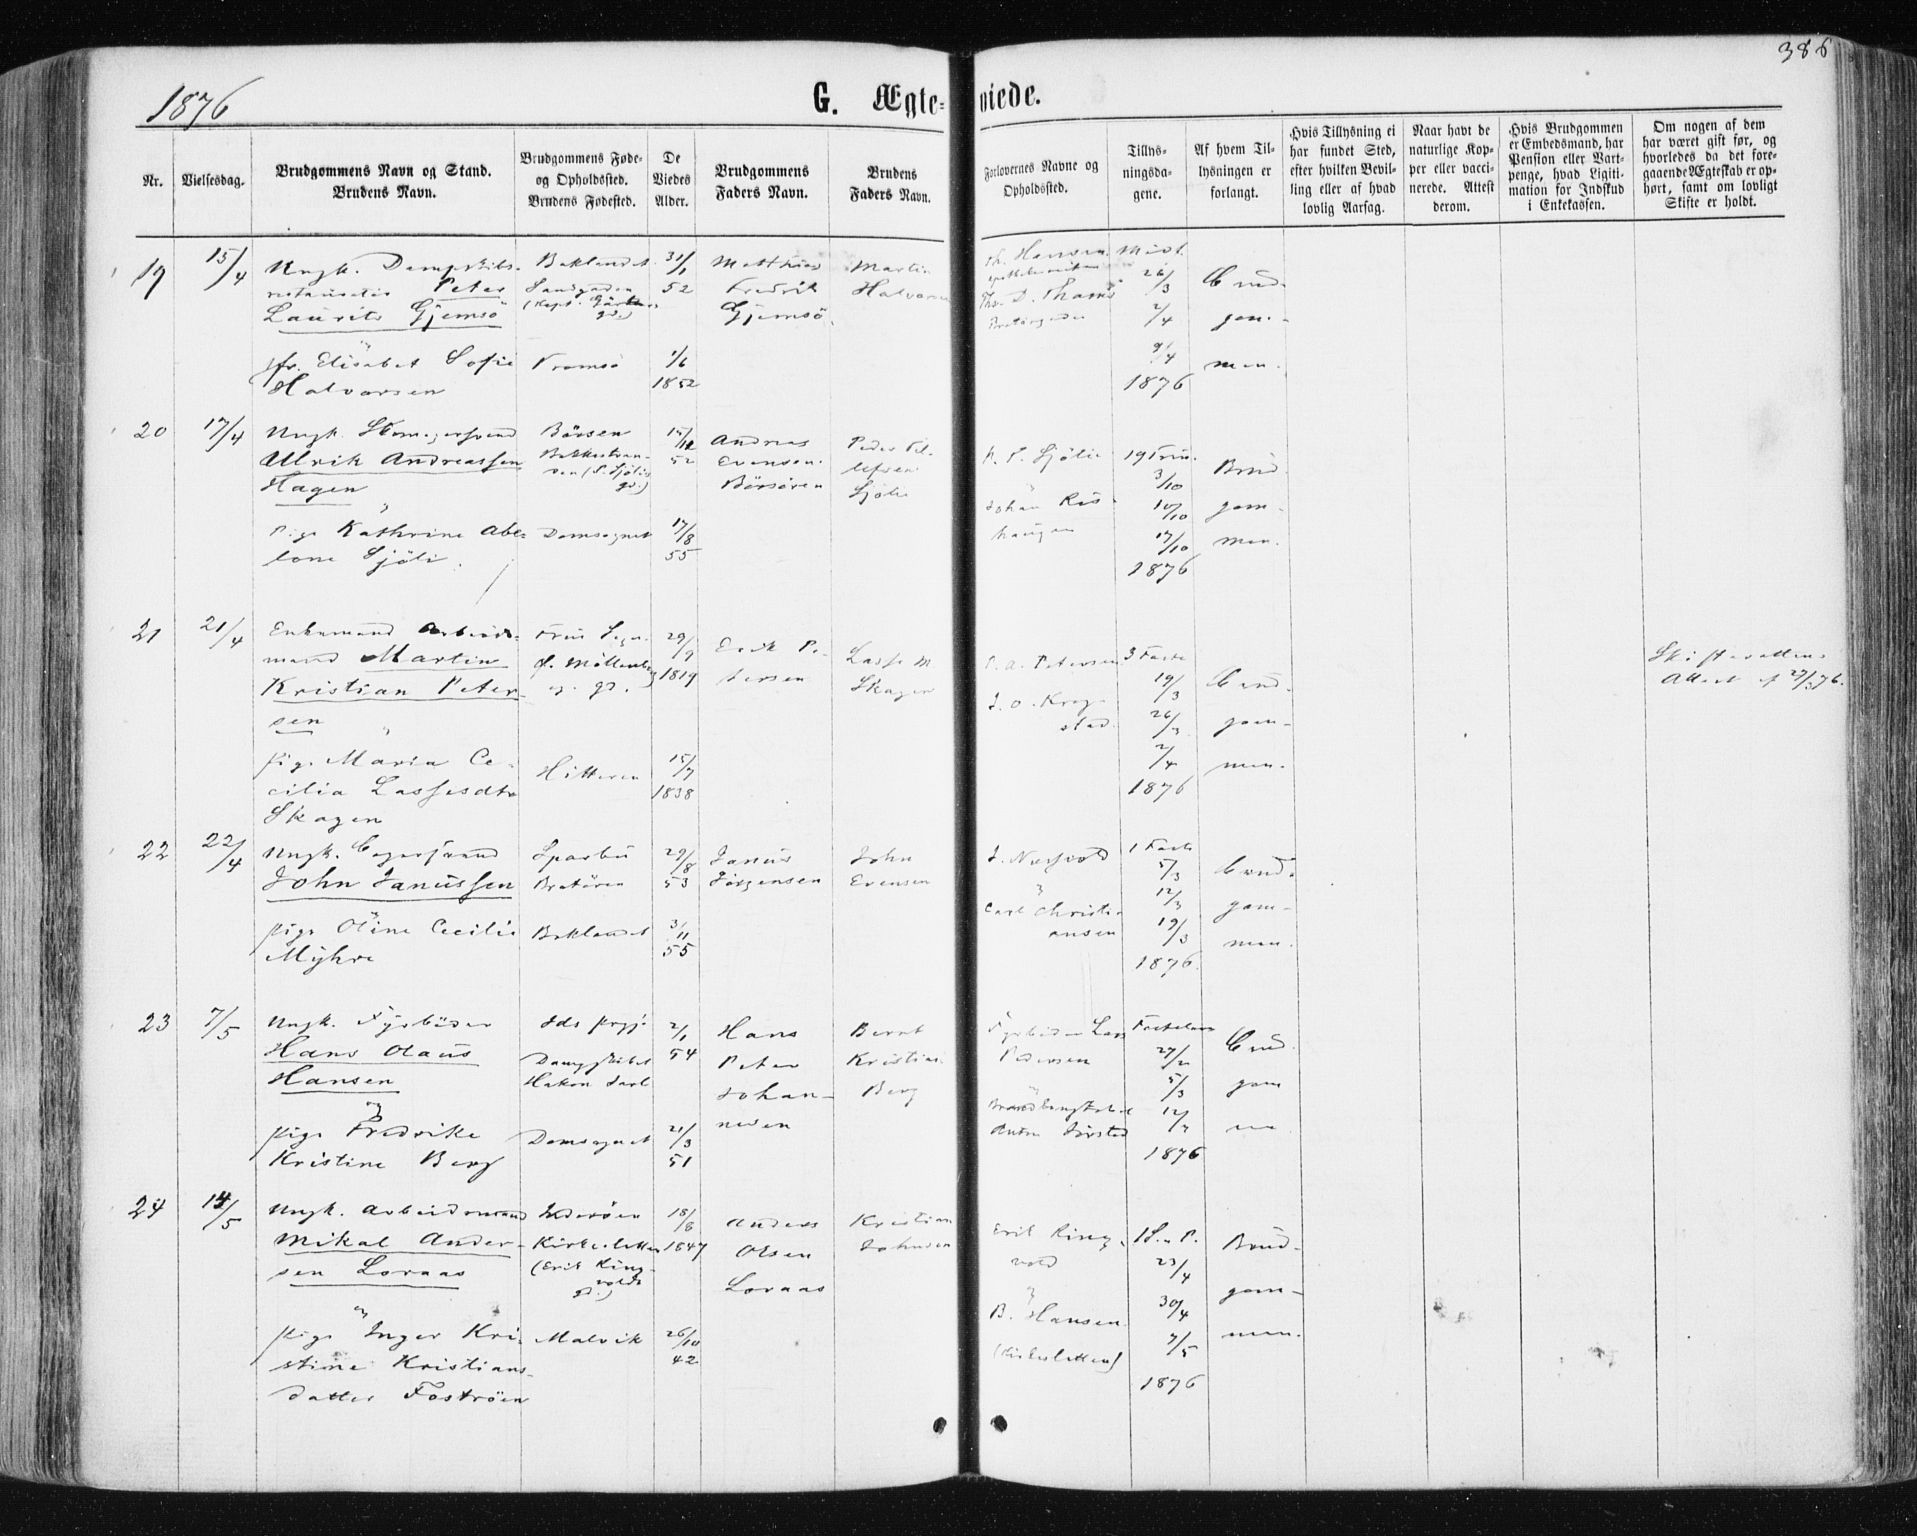 386
1876
G. Ægte-
viede.
Nr.
Vielsesdag.
Brudgommens Navn og Stand.
Brudens Navn.
Brudgommens Føde-
og Opholdssted.
Brudens Fødested.
De
Viedes
Alder.
Brudgommens
Faders Navn.
Brudens
Faders Navn.
Forlovernes Navne og
Opholdssted.
Tillys-
ningsda-
gene.
Af hvem Til-
lysningen er
forlangt.
Hvis Tillysning ei
har fundet Sted,
efter hvilken Bevil-
ling eller af hvad
lovlig Aarsag.
Naar havt de
naturlige Kop-
per eller vacci-
nerede. Attest
derom.
Hvis Brudgommen
er Embedsmand, har
Pension eller Vart-
penge, hvad Ligiti-
mation for Indskud
i Enkekassen.
Om nogen af dem
har været gift før, og
hvorledes da det fore-
gaaende Ægteskab er op-
hørt, samt om lovligt
Skifte er holdt.
19
15/4
Ungk. Dampskibs-
Peter
Laurits Gjemsö
jfr. Elisabet Sofie
Halvorsen
Baklandet
Sandgaden
Tromsö
31/1
52
1/6
1852
Matthias
Fredrik
Gjemsö.
Martin
Halvorsen
Th. Hansen
Thv. D. Thams
Midf.
26/3
2/4
9/4
1876
Brud-
gom-
men.
20
17/4
Ungk. Skomagersvend
Ulrik Andreassen
Hagen
Pige Kathrine Abe-
lone Sjöli.
Börsen
Domsognet
15/12
52
17/8
55
Andreas
Evensen
Börsören
Peder Til-
lefsen
Sjöli
P. T. Sjöli
Johan Ris-
haugen
19 Trin.
3/10
10/10
17/10
1876
Brud
gom-
men.
21
21/4
Enkemand Arbeids-
mand Martin
Kristian Peter-
sen
pige Maria Ce-
cilia Lassesdtr
Skagen
Hitteren
29/9
1819
15/7
1838
Erik Pe-
tersen
Lasse M
Skagen
P. A. Petersen
J. O. Krog-
stad.
3 Faste
19/3
26/3
2/4
1876
Brud-
gom-
men.
Skifterettens
Attest af 27/3 76.
22
22/4
Ungk. Bagersvend
John Janussen
pige Oline Cecilie
Myhre
Sparbu
Bratören
Baklandet
29/8
53
3/11
55
Janus
Jörgensen
John
Evensen
Carl Christi-
ansen
1 Faste
5/3
12/3
19/3
1876.
Brud-
gom-
men.
23
7/5
Ungk. Fyrböder
Hans Olaus
Hansen
pige Fredrike
Kristine Berg
Dampskibet
Hakon Jarl
Domsognet
2/1
54
21/3
51
Hans
Peter
Johan-
nesen
Bernt
Kristian
Berg
Fyrböder Lars
Pedersen
Fastelavn
27/2
5/3
12/3
1876
Brud
gom
24
14/5
Ungk. Arbeidsmand
Mikal Ander-
sen Loraas
pige Inger Kri-
stine Kristians-
datter Foströen
Inderöen
Kirkesletten
(Erik Ring-
volds
gd.)
Malvik
18/8
1847
26/10
42
Anders
Olsen
Loraas
Kristian
Johnsen
Erik Ring-
vold
B. Hansen
(Kirkesletten)
1 S. e. P.
23/4
30/4
7/5
1876
Brud-
gom-
men.